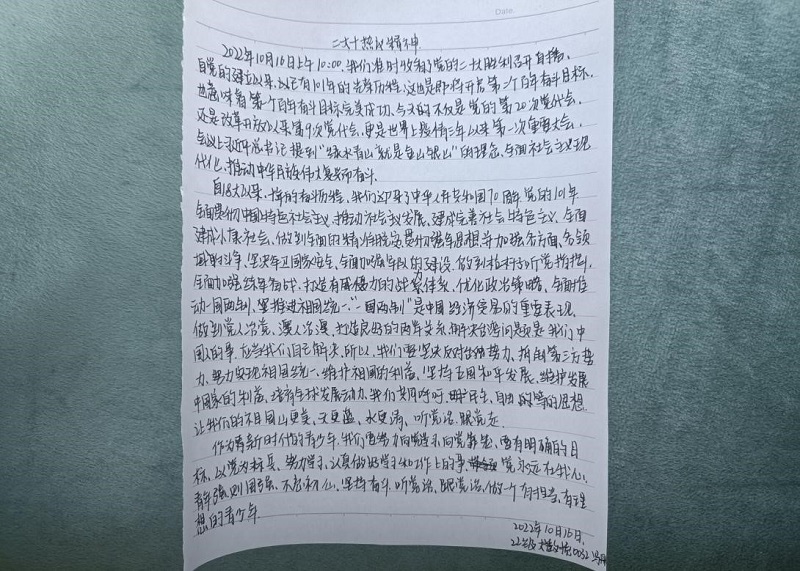 Date.
二十大热议精神
2022年10月16日上午10:00,我们准时收看了党的二十大胜利召开直播,
自党的建立以来,以已有101年的光辉历程,这也是即将开启第二个百年奋斗目标,
也意味着第一个百年奋斗目标完美成功,今天的不仅是党的第20次党代会,
还是改革开放以来第9次党代会,更是世界上疫情三年以来第一次重要大会,
会议上习近平总书记提到“绿水青山就是金山银山”的理念,全面社会主义现
代化,推动中华民族伟大复兴而奋斗.
自18大以来,十年的奋斗历程,我们迎来了中华人民共和国70周年,党的101年
全面贯彻中国特色社会主义,推动社会主义发展,建成完善社会特色主义,全面
建成小康社会,做到全面的精准脱贫,贯彻强军思想并加强各方面、各领
域的斗争,坚决捍卫国家安全,全面加强军队的建设,做到枪杆子听党指挥,
全面加强练军备战,打造有威慑力的战略体系,优化政治策略,全面推
动一国两制,坚推进祖国统一,“一国两制”是中国经济发展的重要表现,
做到党人治党,澳人治澳,打造良好的两岸关系,解决台湾问题是我们中
国人的事,应当我们自己解决,所以,我们要坚决反对台独势力,排除第三方势
力,努力实现祖国统一,维护祖国的利益,坚持王国和平发展,维护发展
中国家的利益,培养全球发展动力,我们共同呼吁,
让我们的祖国山更美,天更蓝,水更清,听党话,跟党走.
作为青新时代的青少年,我们更努力向党,要有明确的目
标,以党为标兵,努力学习,认真做好学习和工作上的事,党永远在我心,
青年强,则国强,不忘初心,坚持奋斗,听党话,跟党走,做一个有担当,有理
想的青少年.
2022年10月16日.
22级